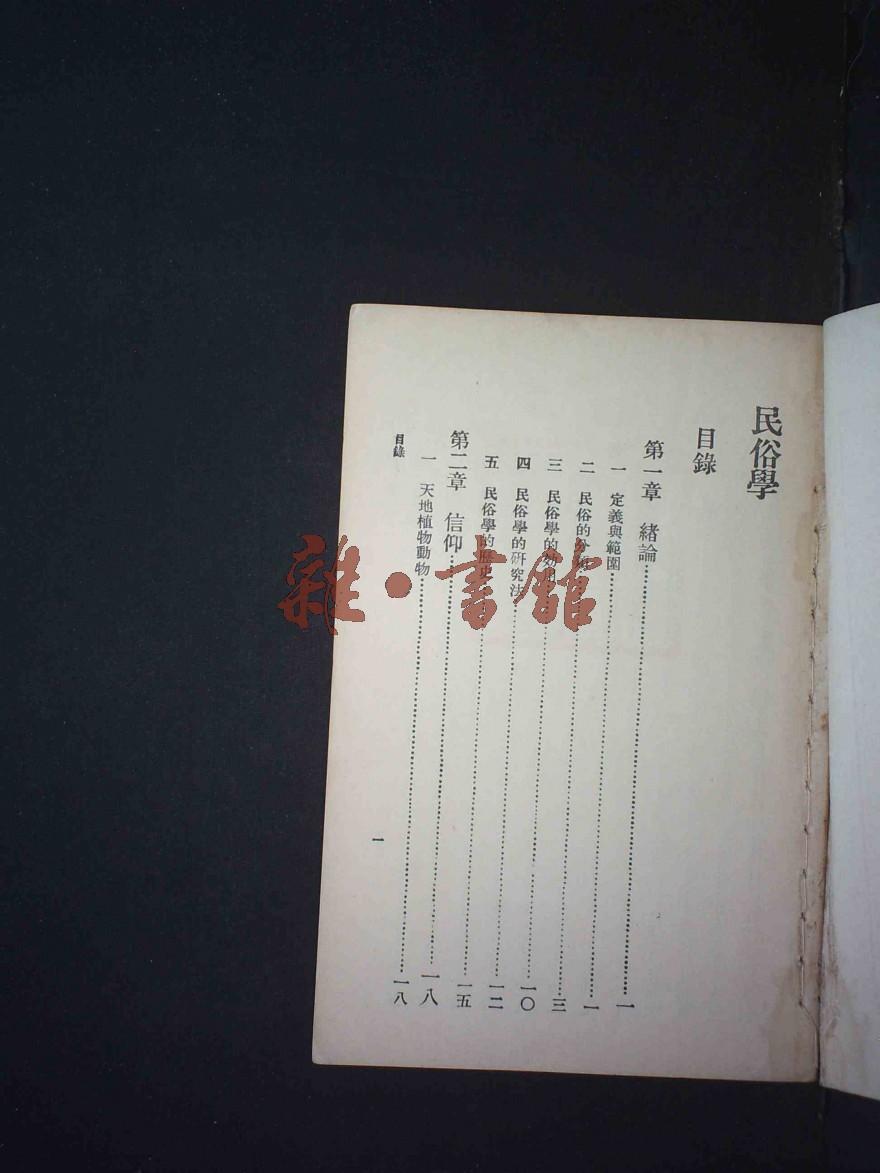 民俗學
目錄
第一章 緒論……一
一 定義與範圍……一
二 民俗的分……三
三 民俗學的効用……一〇
四 民俗學的研究法……一二
五 民俗學的歷史……一五
第二章 信仰……一八
一 天地植物動物……一八
目錄
一
雜·書館